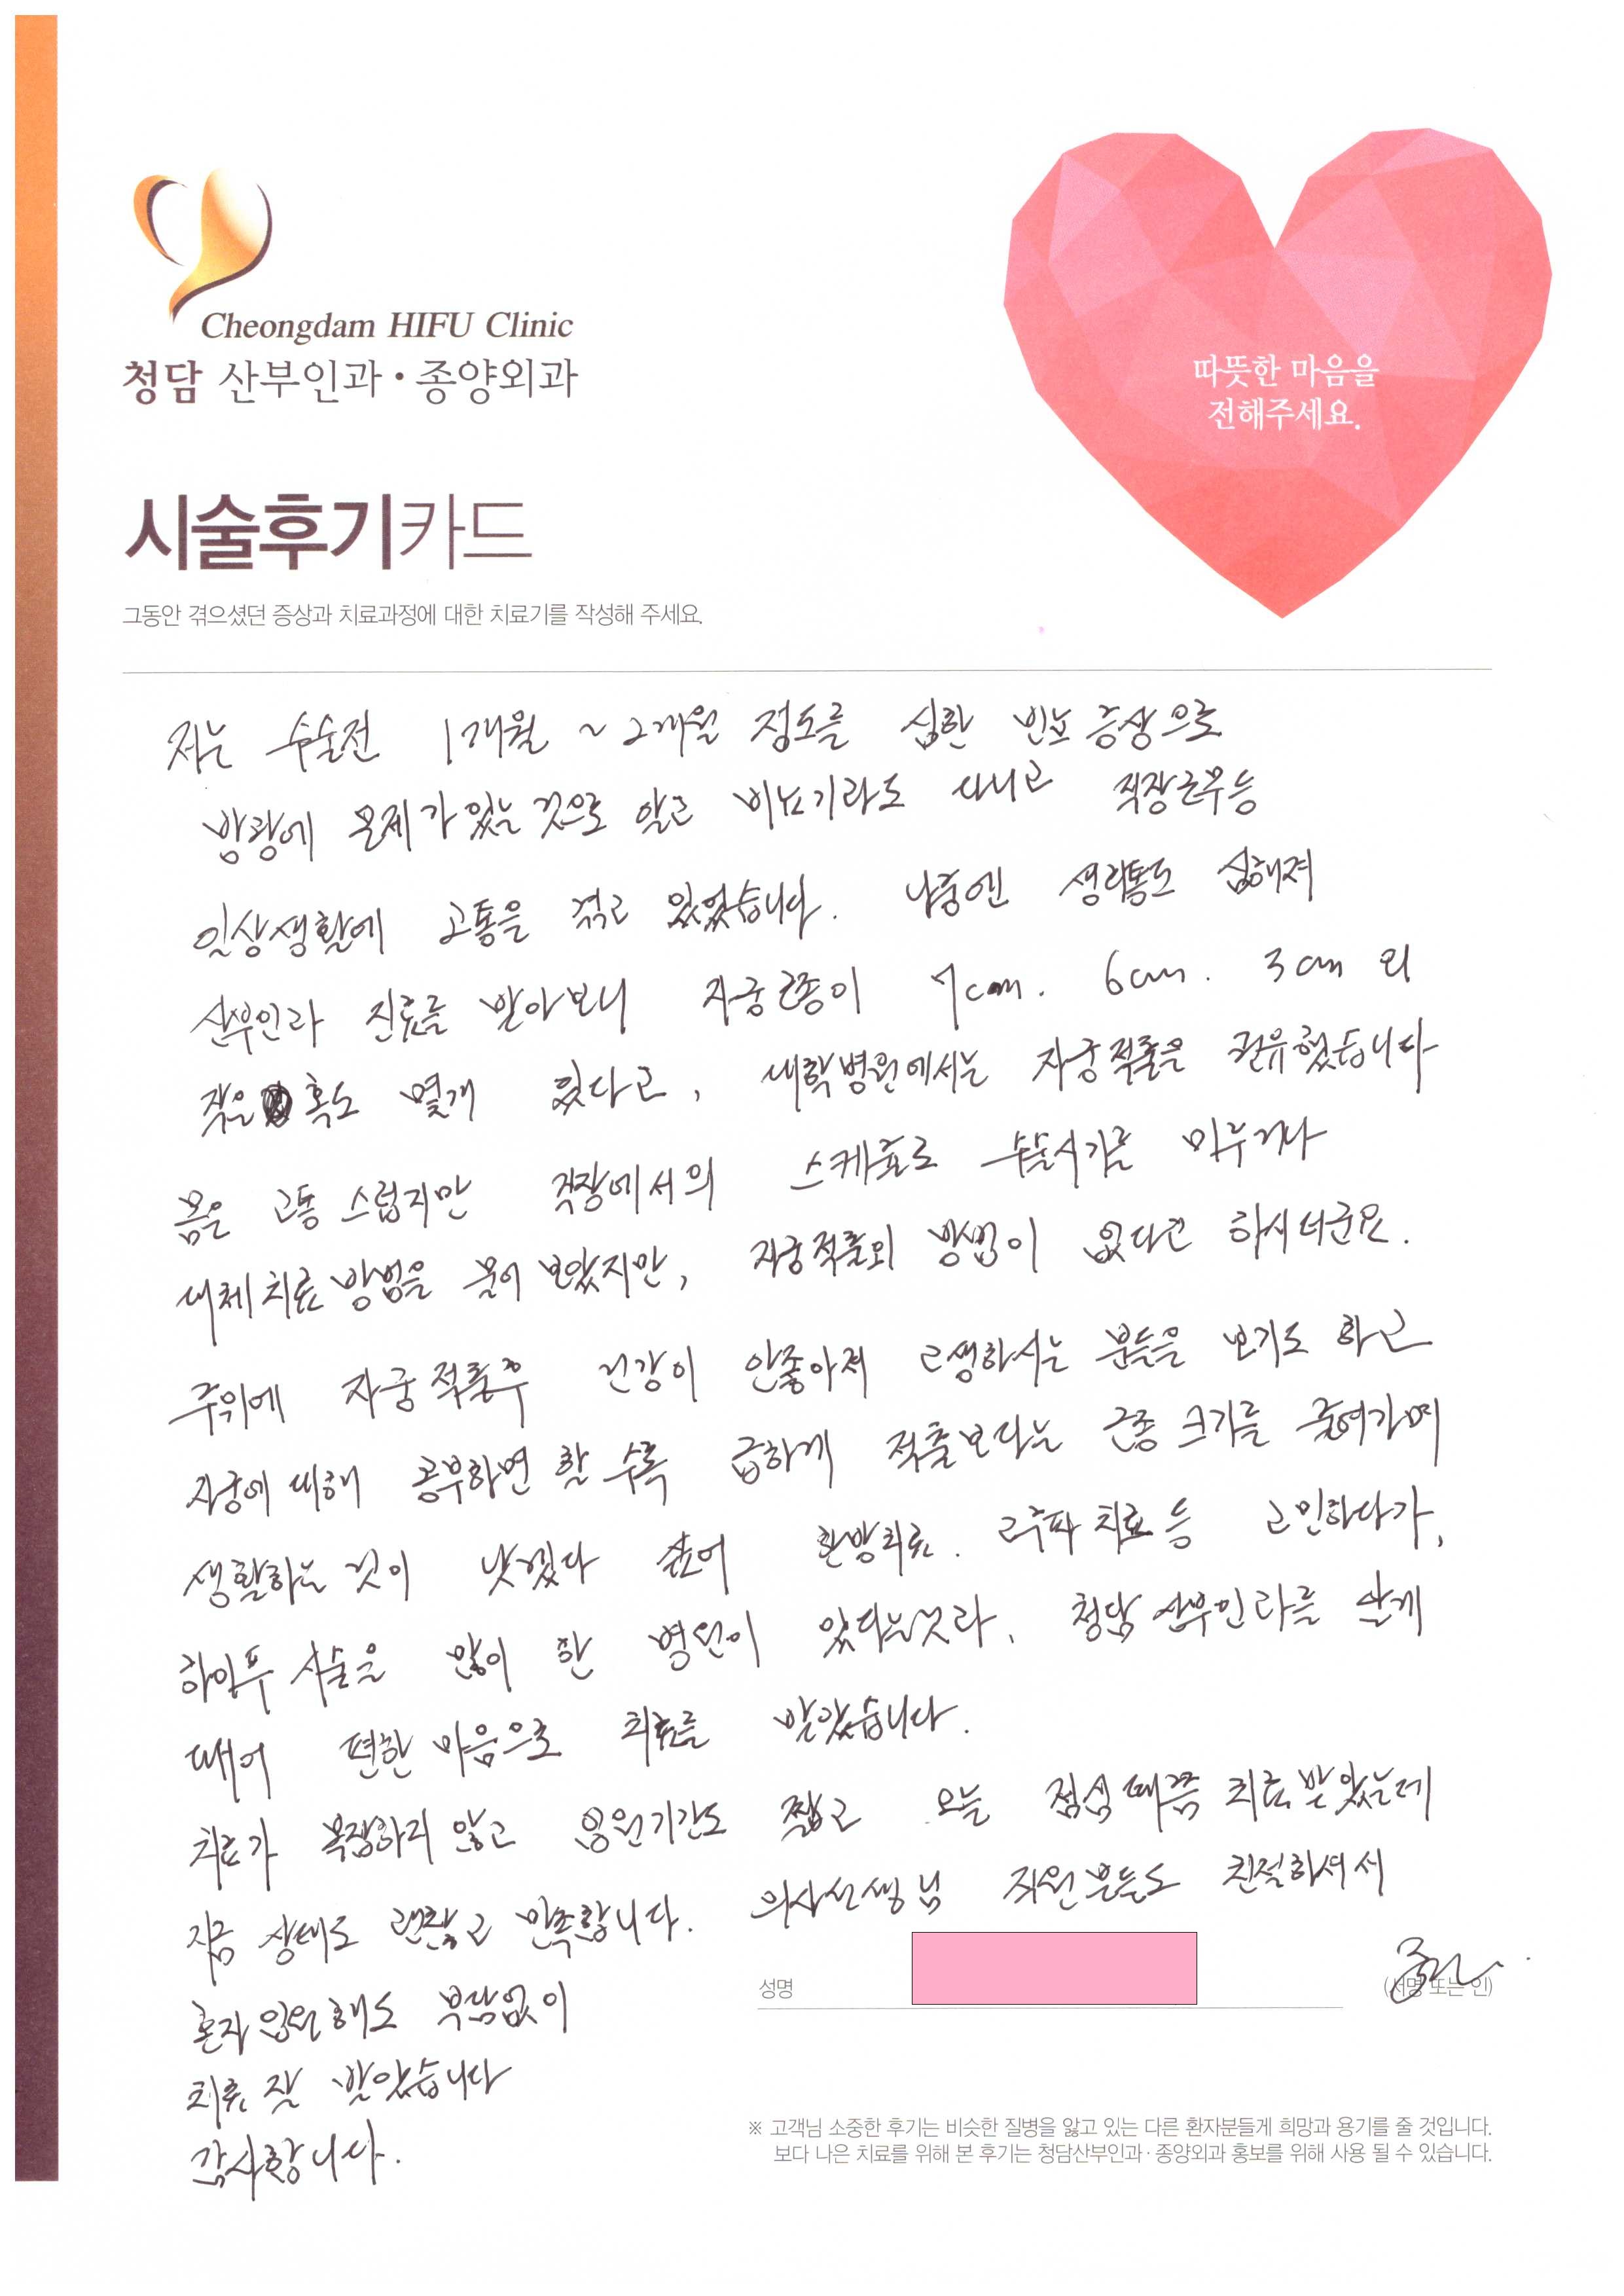 Cheongdam HIFU Clinic
청담 산부인과·종양외과
따뜻한 마음을
전해주세요.
시술후기카드
그동안 겪으셨던 증상과 치료과정에 대한 치료기를 작성해 주세요.
저는 수술전 1개월 ~ 2개월 정도를 심한 빈뇨 증상으로
방광에 문제가 있는 것으로 알고 비뇨기과도 다니고 직장근무등
일상생활에 고통을 겪고 있었습니다. 나중엔 생리통도 심해져
산부인과 진료를 받아보니 자궁근종이 7cm. 6cm. 3cm 외
작은 혹도 몇개 있다고, 대학병원에서는 자궁적출을 권유했습니다
몸은 고통스럽지만 직장에서의 스케쥴로 수술시기를 미루거나
대체치료 방법을 물어 보았지만, 자궁적출외 방법이 없다고 하시더군요.
주위에 자궁적출후 건강이 안좋아져 고생하시는 분들을 보기도 하고
자궁에 대해 공부하면 할 수록 급하게 적출보다는 근종 크기를 줄여가며
생활하는 것이 낫겠다 싶어 한방치료. 고주파 치료 등 고민하다가,
하이푸 시술을 많이 한 병원이 있다는것과, 청담 산부인과를 알게
돼어 편한 마음으로 치료를 받았습니다.
치료가 복잡하지 않고 입원기간도 짧고 오늘 점심 때쯤 치료 받았는데
지금 상태도 괜찮고 만족합니다. 의사선생님 직원분들도 친절하셔서
성명 (서명 또는 인)
혼자 입원해도 부담없이
치료 잘 받았습니다
감사합니다.
※ 고객님 소중한 후기는 비슷한 질병을 앓고 있는 다른 환자분들게 희망과 용기를 줄 것입니다.
보다 나은 치료를 위해 본 후기는 청담산부인과·종양외과 홍보를 위해 사용 될 수 있습니다.